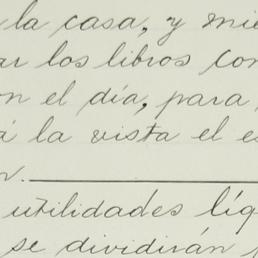 la casa, y mie
ar los libros con
on el día, para
á la vista el es
n.
utilidades líq
se dividirán